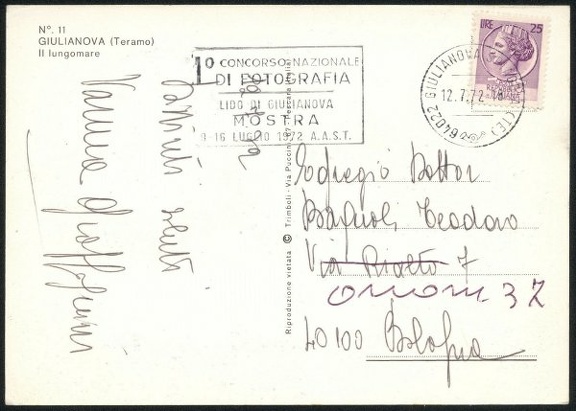 N°. 11
GIULIANOVA (Teramo)
Il lungomare
1° CONCORSO NAZIONALE
DI FOTOGRAFIA
LIDO DI GIULIANOVA
MOSTRA
8-16 LUGLIO 1972 A.A.S.T.
LIRE 25
64022 GIULIANOVA (TE)
12.7.72-18
saluti
Riproduzione vietata © Trimboli - Via Puccini, 67 - Pescara (Italia)
Egregio Dottor
Bagnoli Teodoro
Via Rialto 7
37
40100 Bologna